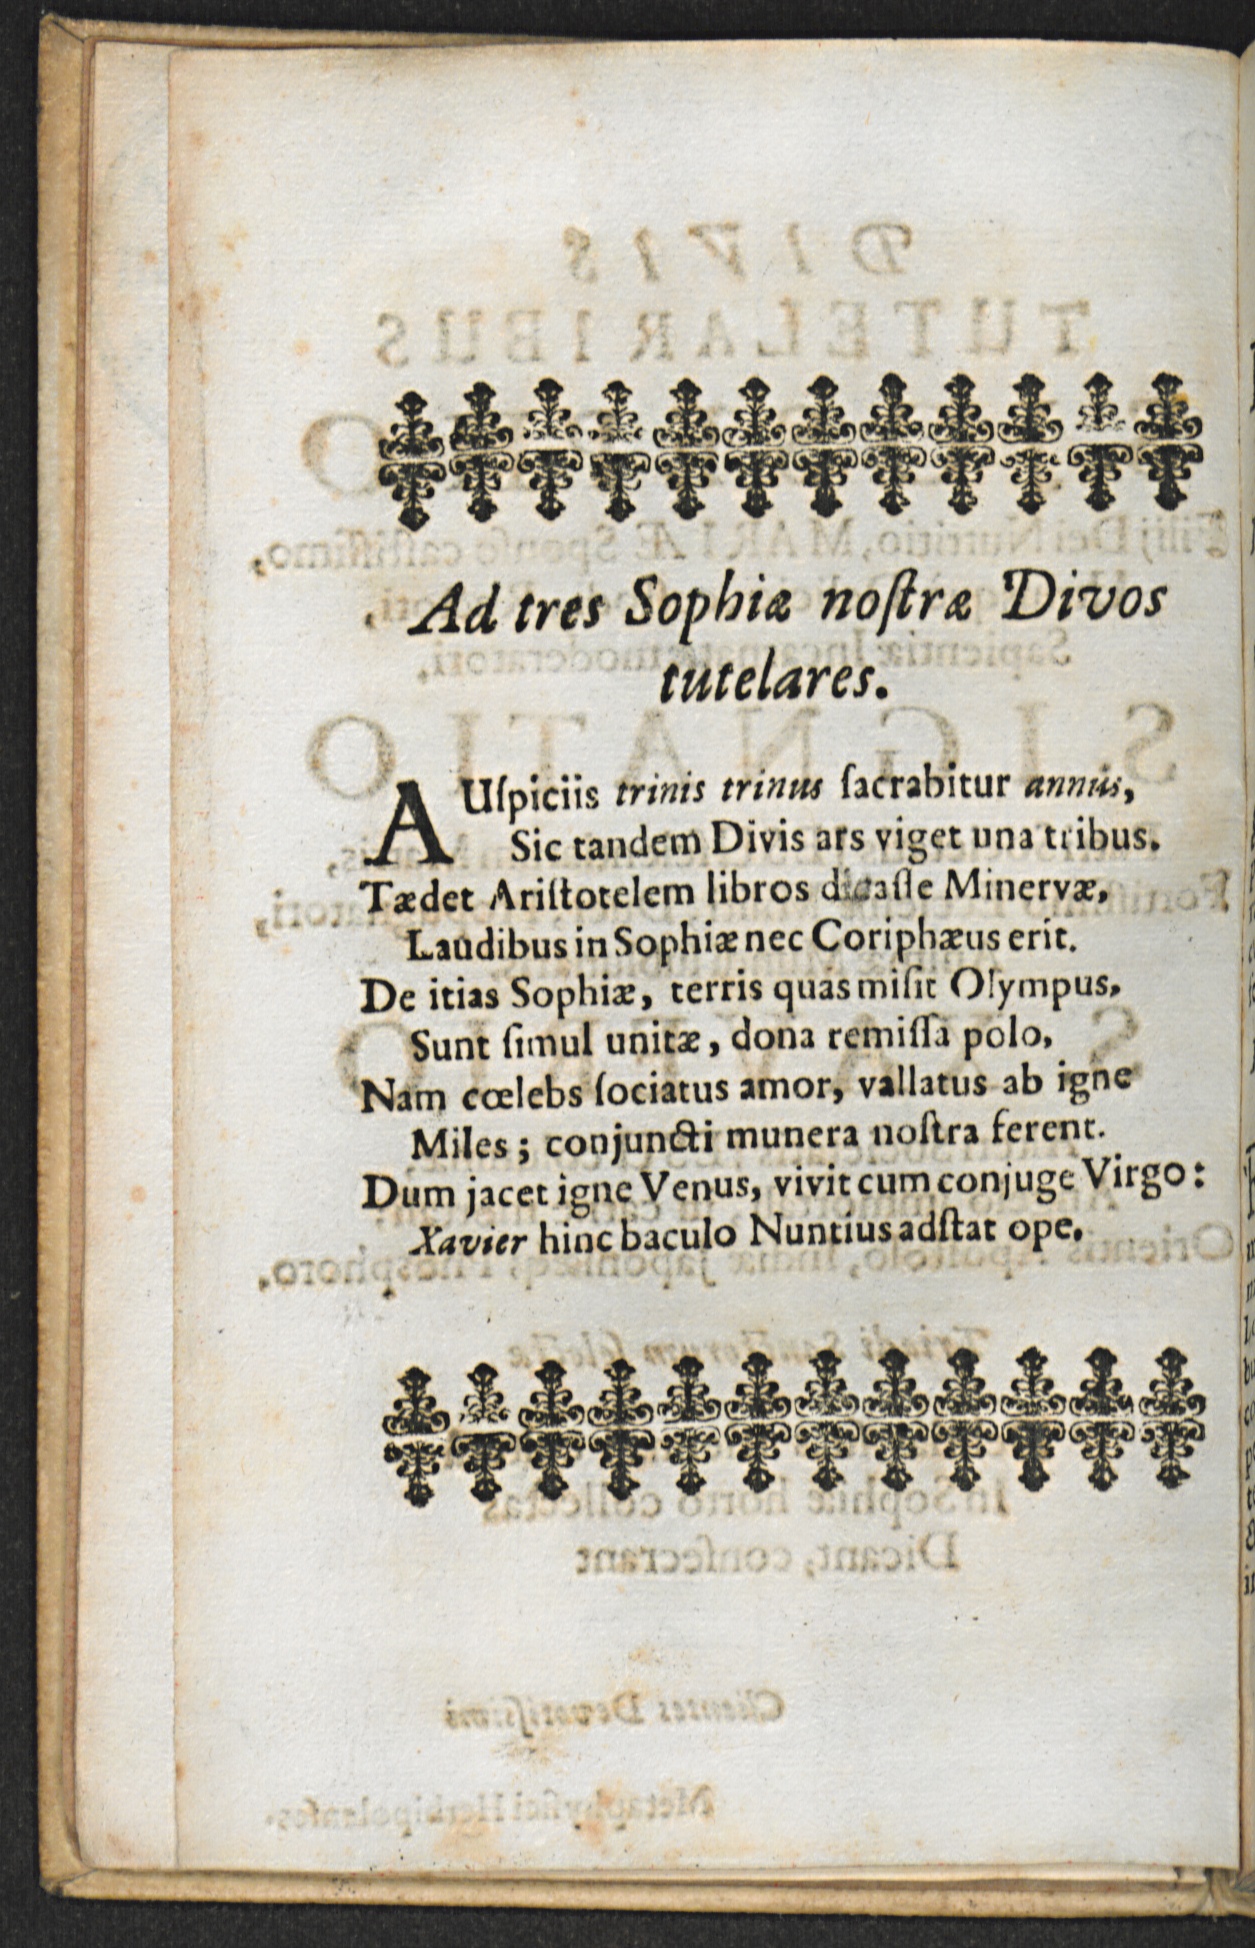 Ad tres Sophiæ noſtræ Divos
tutelares.
AUſpiciis trinis trinus ſacrabitur annus,
Sic tandem Divis ars viget una tribus.
Tædet Ariſtotelem libros dicaſſe Minervæ,
Laudibus in Sophiæ nec Coriphæus erit.
De itias Sophiæ, terris quas miſit Olympus,
Sunt ſimul unitæ, dona remiſſa polo,
Nam cœlebs ſociatus amor, vallatus ab igne
Miles; conjuncti munera noſtra ferent.
Dum jacet igne Venus, vivit cum conjuge Virgo:
Xavier hinc baculo Nuntius adſtat ope.